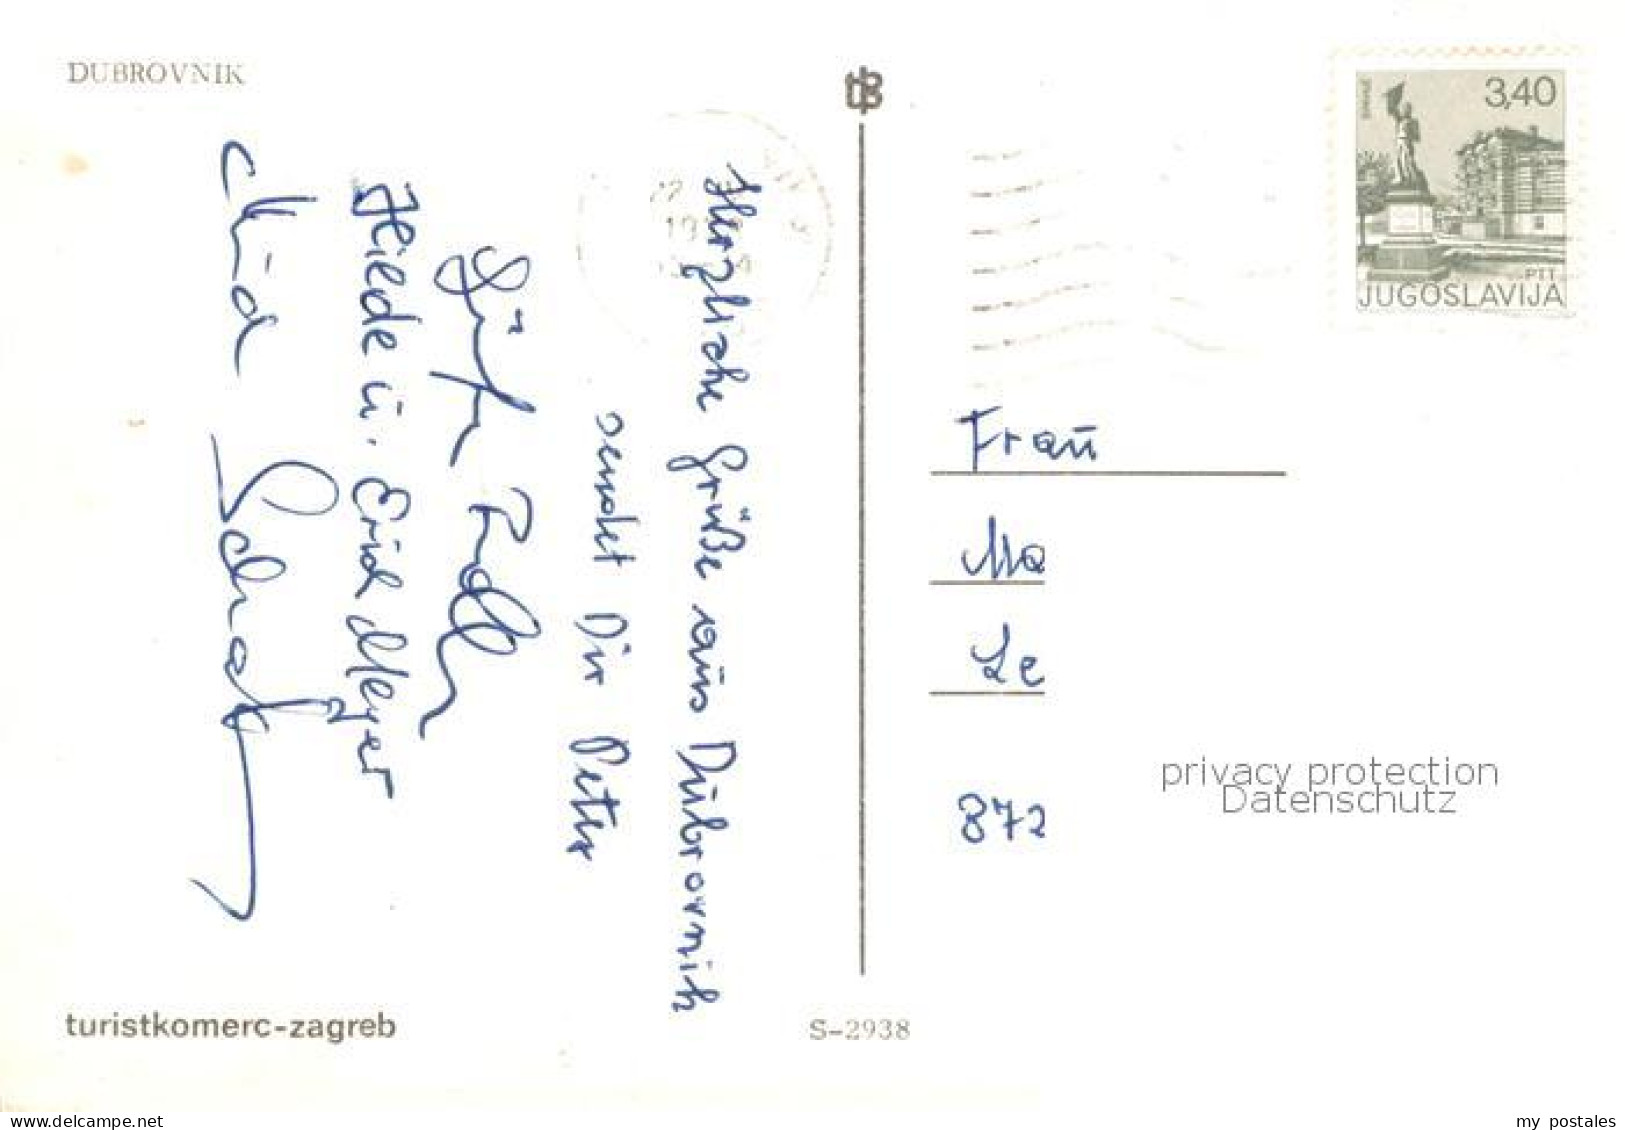 DUBROVNIK
Herzliche Grüße aus Dubrovnik
sendet Dir Peter
Hilde u. Erich Meyer
3,40
PTT
JUGOSLAVIJA
Frau
Ma
Le
872
privacy protection
Datenschutz
turistkomerc-zagreb
S-2938
delcampe.net
my_postales